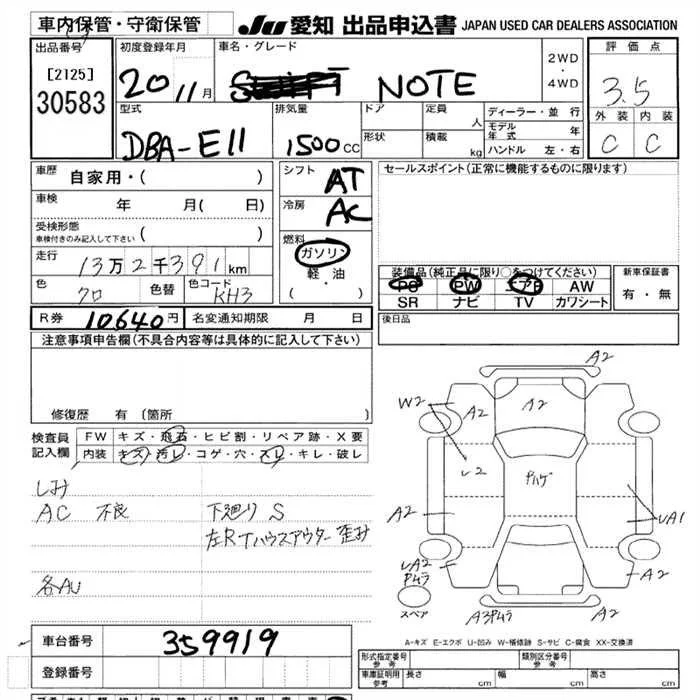 車内保管・守衛保管
JU 愛知 出品申込書 JAPAN USED CAR DEALERS ASSOCIATION
出品番号
[2125]
30583
初度登録年月
20 11月
車名・グレード
NOTE
2WD
・
4WD
評価点
3.5
外装 内装
C C
型式
DBA-E11
排気量
1500CC
ドア
形状
定員
人
積載
kg
ディーラー・並行
モデル年式 年
ハンドル 左・右
車歴
自家用・( )
車検
年 月( 日)
受検形態
車検付きのみ記入して下さい ( )
走行
13万2千391km
色
クロ
色替
色コード
KH3
シフト
AT
冷房
AC
燃料
ガソリン
・
軽油
( )
セールスポイント(正常に機能するものに限ります)
装備品(純正品に限り○をつけてください)
PS PW エアB AW
SR ナビ TV カワシート
新車保証書
有・無
R券 10640円 名変通知期限 月 日
後日品
注意事項申告欄(不具合内容等は具体的に記入して下さい)
修復歴 有 〔箇所
検査員記入欄
FW キズ・飛石・ヒビ割・リペア跡・X要
内装 キズ・汚レ・コゲ・穴・スレ・キレ・破レ
しみ
AC 不良 下廻り S
左RTハウスアウター歪み
各AU
A2
W2
A2
A2
レ2
ヤハゲ
A2
レA1
レA2
Pムラ
A2
スペア
A3Pムラ
A-キズ E-エクボ U-凹み W-補修跡 S-サビ C-腐食 XX-交換済
車台番号 359919
登録番号
型式指定番号
参考
類別区分番号
参考
車庫証明用
参考
長さ cm 幅 cm 高さ cm